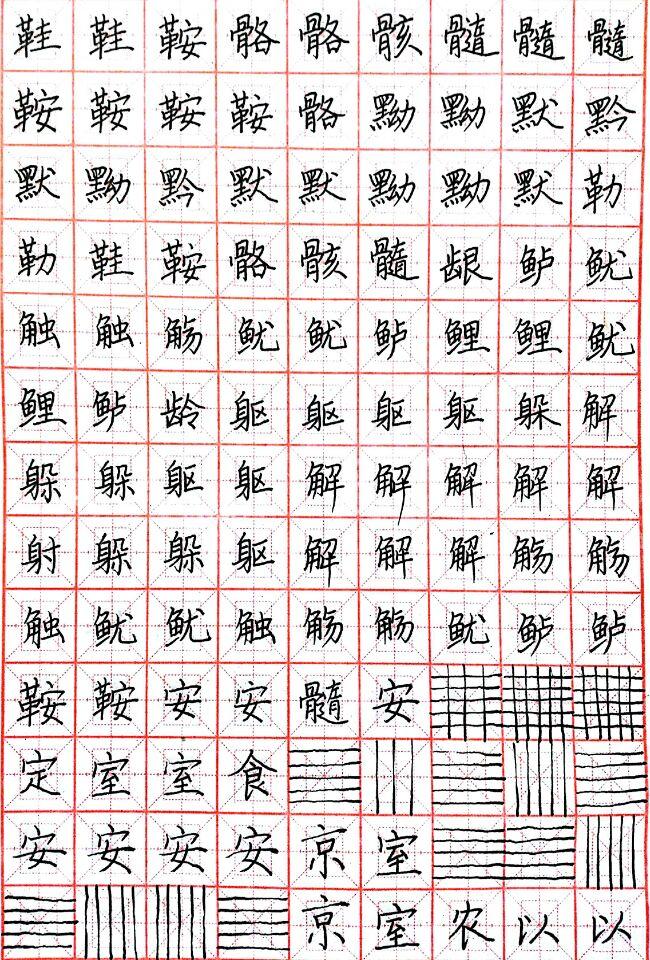 鞋鞋鞍骼骼骸髓髓髓
鞍鞍鞍鞍骼黝黝默黔
默黝黔默默黝黝默勒
勒鞋鞍骼骸髓龈鲈鱿
触触觞鱿鱿鲈鲤鲤鱿
鲤鲈龄躯躯躯躯躲解
躲躲躯躯解解解解解
射躲躲躯解解解觞觞
触鱿鱿触觞觞鱿鲈鲈
鞍鞍安安髓安
定室室食
安安安安京室
京室农以以